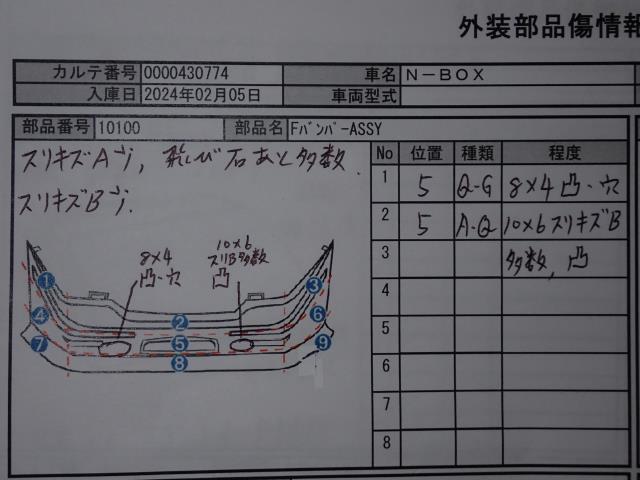 外装部品傷情報
カルテ番号 0000430774 車名 N-BOX
入庫日 2024年02月05日 車両型式
部品番号 10100 部品名 Fバンパ-ASSY
スリキズAあり, 飛び石あと多数.
スリキズBあり.
No 位置 種類 程度
1 5 Q-G 8×4 凸・穴
2 5 A-Q 10×6 スリキズB
3 多数, 凸
4
5
6
7
8
8×4
凸・穴
10×6
スリB多数
凸
1 2 3
4 5 6
7 8 9